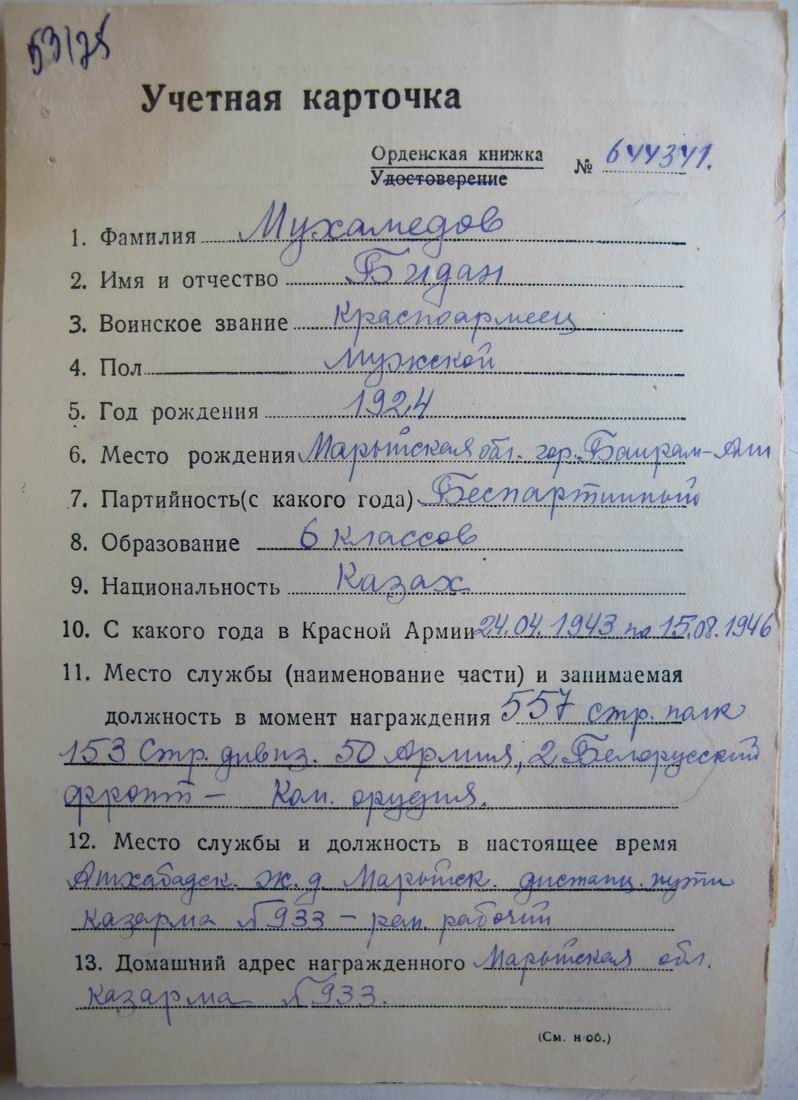 53/75
Учетная карточка
Орденская книжка
Удостоверение
№ 644341.
1. Фамилия Мухамедов
2. Имя и отчество Бидан
3. Воинское звание красноармеец
4. Пол мужской
5. Год рождения 1924
6. Место рождения Марыйская обл. гор. Байрам-Али
7. Партийность(с какого года) Беспартийный
8. Образование 6 классов
9. Национальность Казах
10. С какого года в Красной Армии 24.04.1943 по 15.08.1946
11. Место службы (наименование части) и занимаемая
должность в момент награждения 557 стр. полк
153 Стр. дивиз. 50 Армия, 2 Белорусский
фронт - Ком. орудия.
12. Место службы и должность в настоящее время
Ашхабадск. ж.д Марыйск. дистанц. пути
казарма №933 - рем. рабочий
13. Домашний адрес награжденного Марыйская обл.
казарма №933.
(См. н об.)